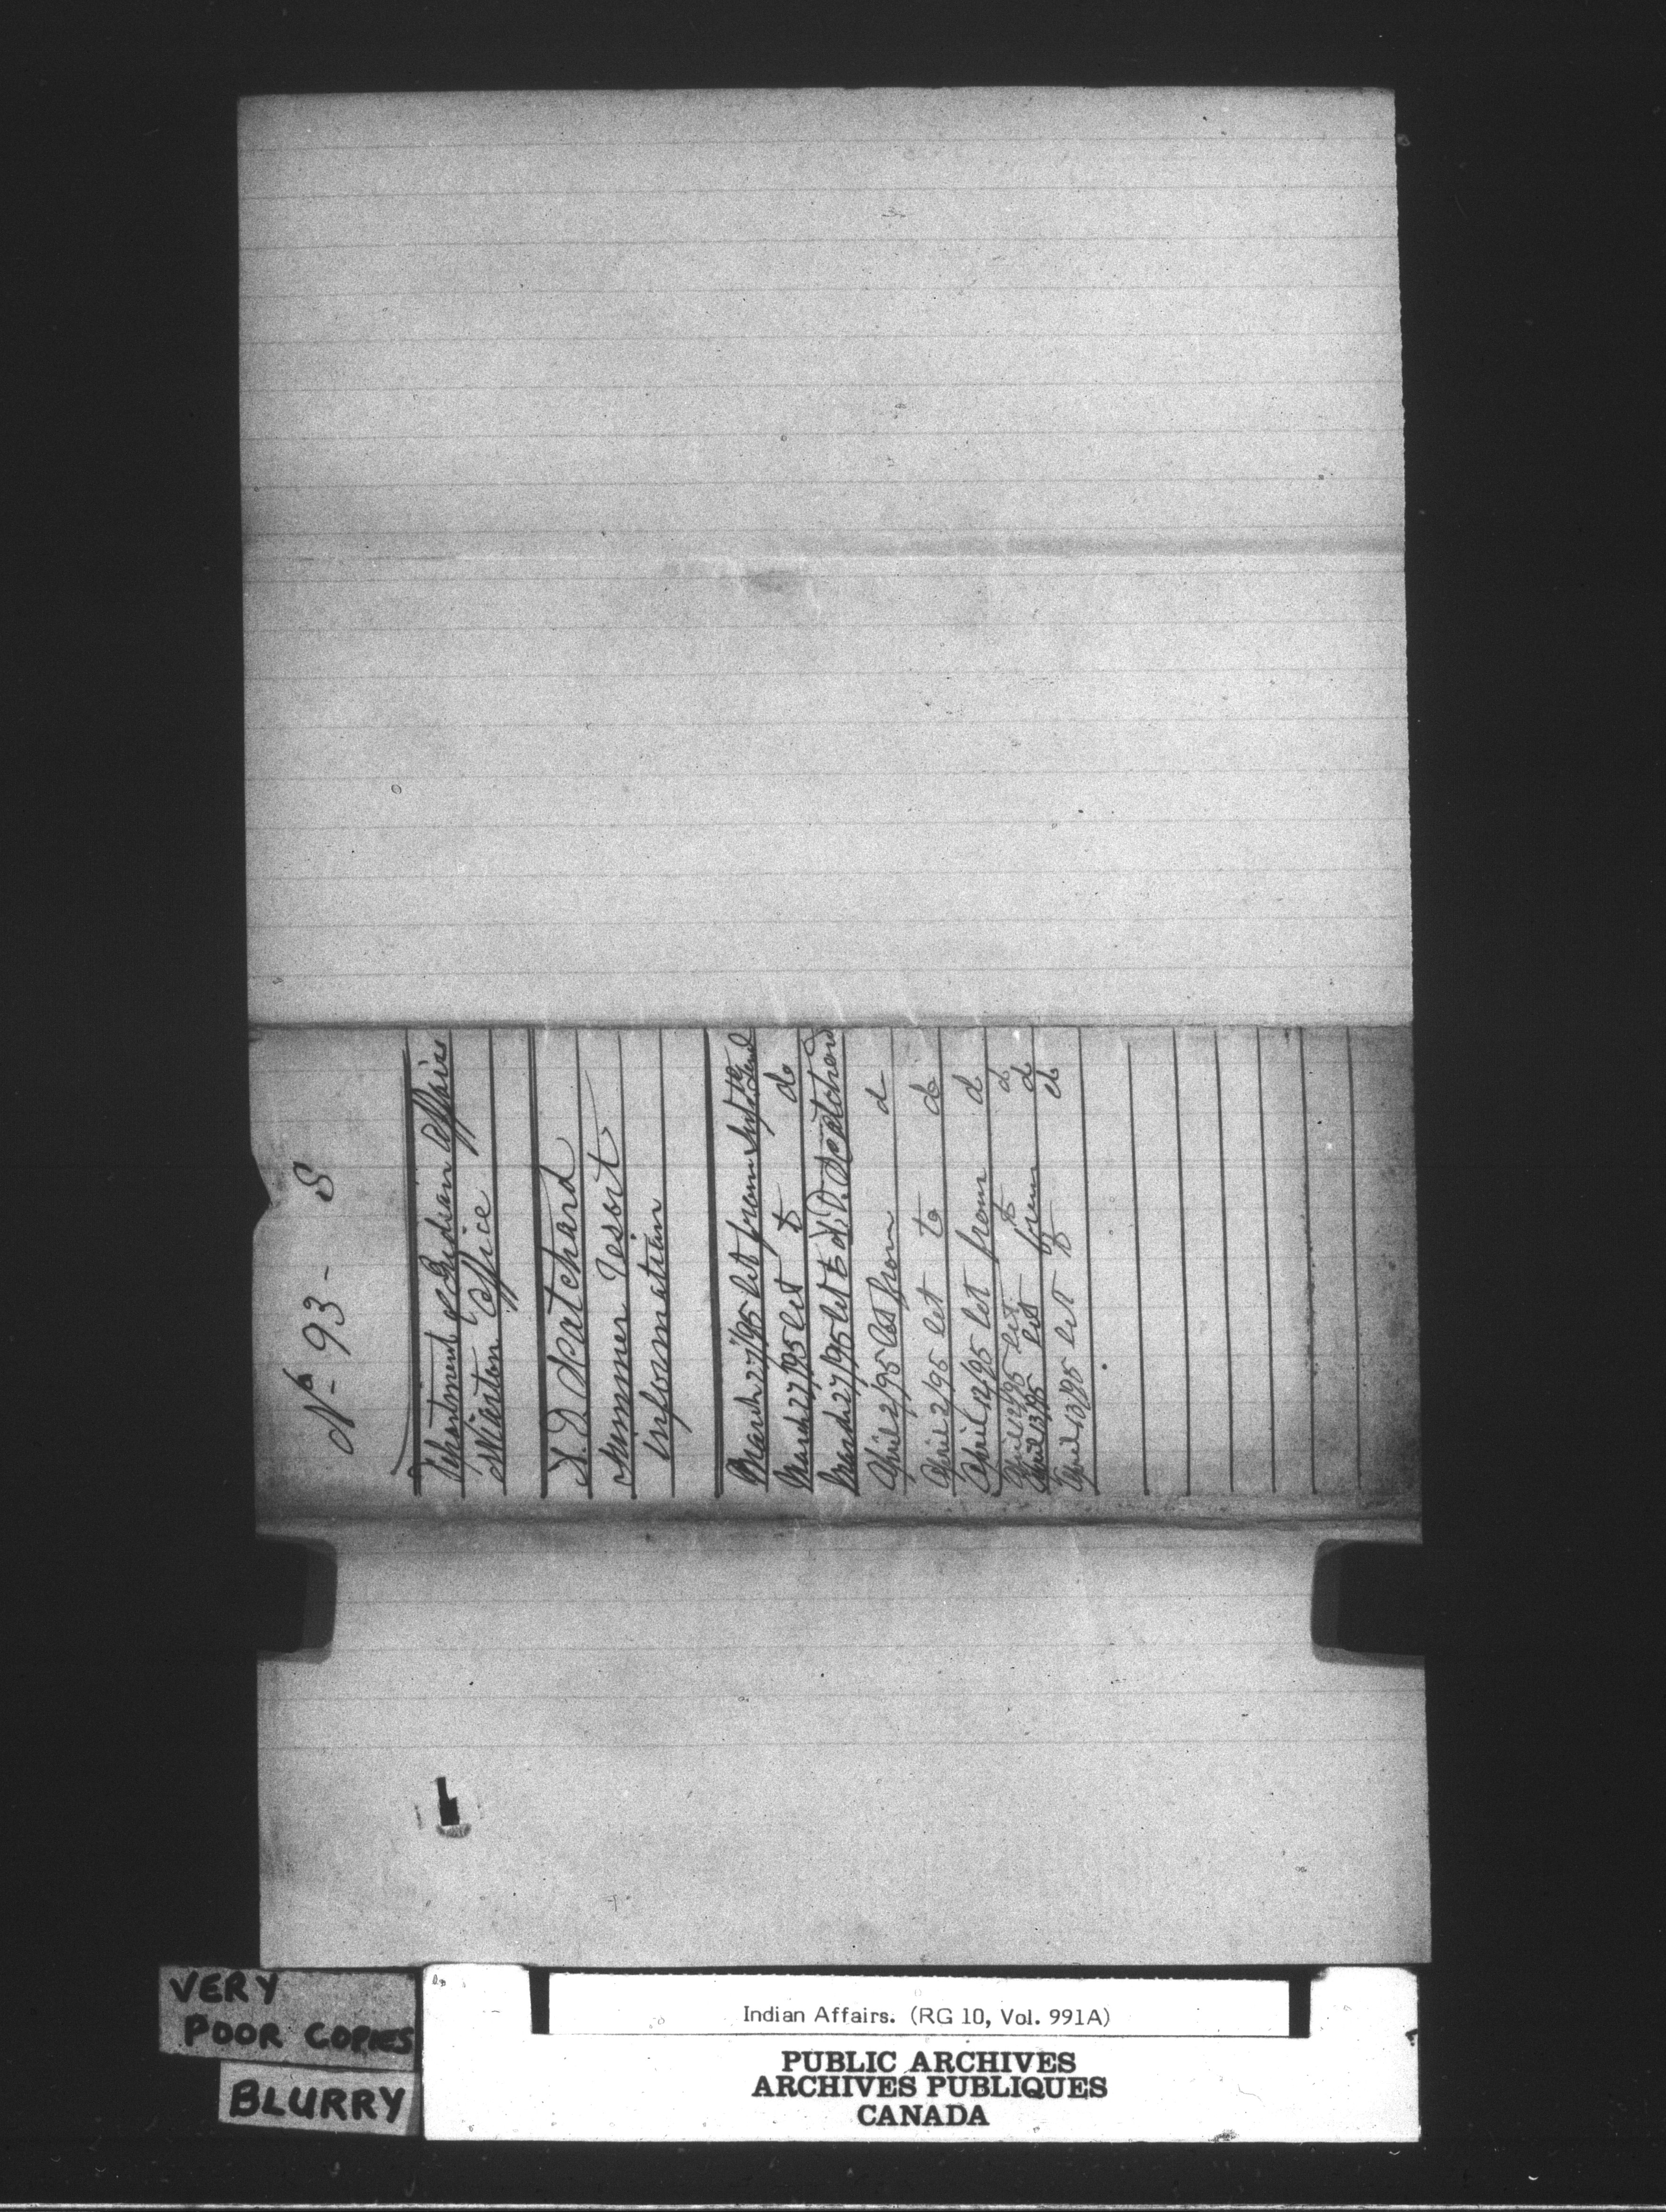 No 93 - S
Department of Indian Affairs
Wiarton Office
Scatchard
Summer Resort
Information
March 27/95 let from
March 27/95 let to do
March 27/95 let to Scatchard
April 2/95 let from do
April 2/95 let to do
April 12/95 let from do
April 12/95 let to do
April 13/95 let from do
April 13/95 let to do
VERY
POOR COPIES
BLURRY
Indian Affairs. (RG 10, Vol. 991A)
PUBLIC ARCHIVES
ARCHIVES PUBLIQUES
CANADA